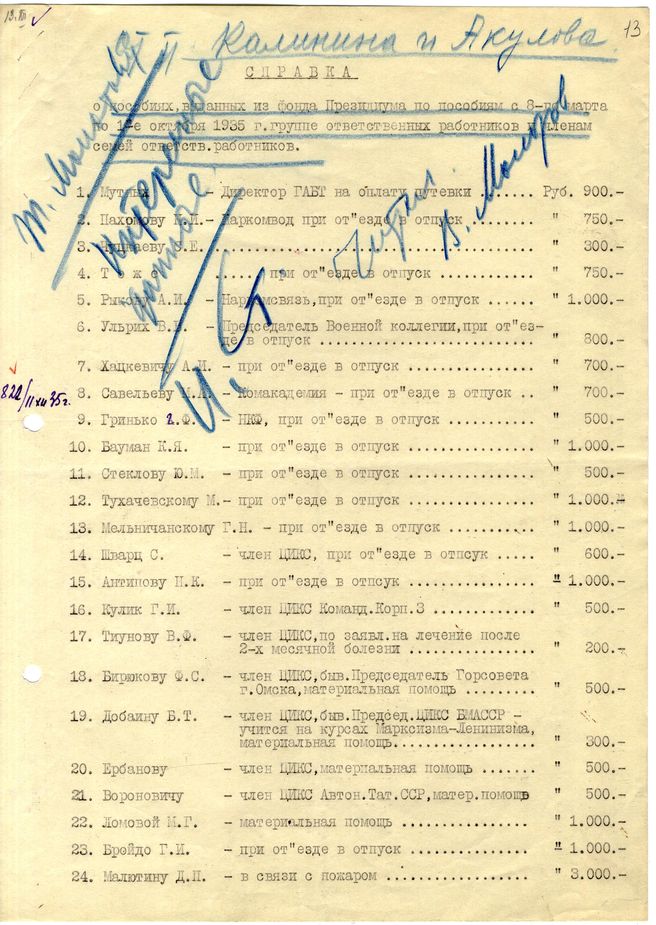 13.XII
13
Калинина и Акулова
т. Молотов
Интересные
данные.
И. Ст
Читал.
В. Молотов
СПРАВКА
о пособиях,выданных из фонда Президиума по пособиям с 8-го марта
по 1-е октября 1935 г.группе ответственных работников и членам
семей ответств.работников.
1. Мутных - Директор ГАБТ на оплату путевки ....... Руб. 900.-
2. Пахомову Н.И.- Наркомвод при от"езде в отпуск ....... " 750.-
3. Чуцкаеву С.Е. ............................. " 300.-
4. Т о ж е ...... при от"езде в отпуск ............ " 750.-
5. Рыкову А.И.- Наркомсвязь,при от"езде в отпуск ...... " 1.000.-
6. Ульрих В.В. - Председатель Военной коллегии,при от"ез-
де в отпуск ...................... " 800.-
7. Хацкевичу А.И. - при от"езде в отпуск ............. " 700.-
822/11 XII 35 г.
8. Савельеву М.А. - Комакадемия - при от"езде в отпуск .. " 700.-
9. Гринько г.Ф. - НКФ, при от"езде в отпуск ......... " 500.-
10. Бауман К.Я. - при от"езде в отпуск ............. " 1.000.-
11. Стеклову Ю.М. - при от"езде в отпуск ............. " 500.-
12. Тухачевскому М.- при от"езде в отпуск ............. " 1.000.-
13. Мельничанскому Г.Н. - при от"езде в отпуск ......... " 1.000.-
14. Шварц С. - член ЦИКС, при от"езде в отпсук ..... " 600.-
15. Антипову Н.К. - при от"езде в отпсук ............... " 1.000.-
16. Кулик Г.И. - член ЦИКС Команд.Корп.3 ............ " 500.-
17. Тиунову В.Ф. - член ЦИКС,по заявл.на лечение после
2-х месячной болезни ............... " 200.-
18. Бирюкову Ф.С. - член ЦИКС,быв.Председатель Горсовета
г.Омска,материальная помощь ......... " 500.-
19. Добаину Б.Т. - член ЦИКС,быв.Председ.ЦИКС БМАССР -
учится на курсах Марксизма-Ленинизма,
материальная помощь.................. " 300.-
20. Ербанову - член ЦИКС,материальная помощь ....... " 500.-
21. Вороновичу - член ЦИКС Автон.Тат.ССР,матер.помощь " 500.-
22. Ломовой М.Г. - материальная помощь ................ " 1.000.-
23. Брейдо Г.И. - при от"езде в отпуск ............... " 1.000.-
24. Малютину Д.П. - в связи с пожаром .................. " 3.000.-